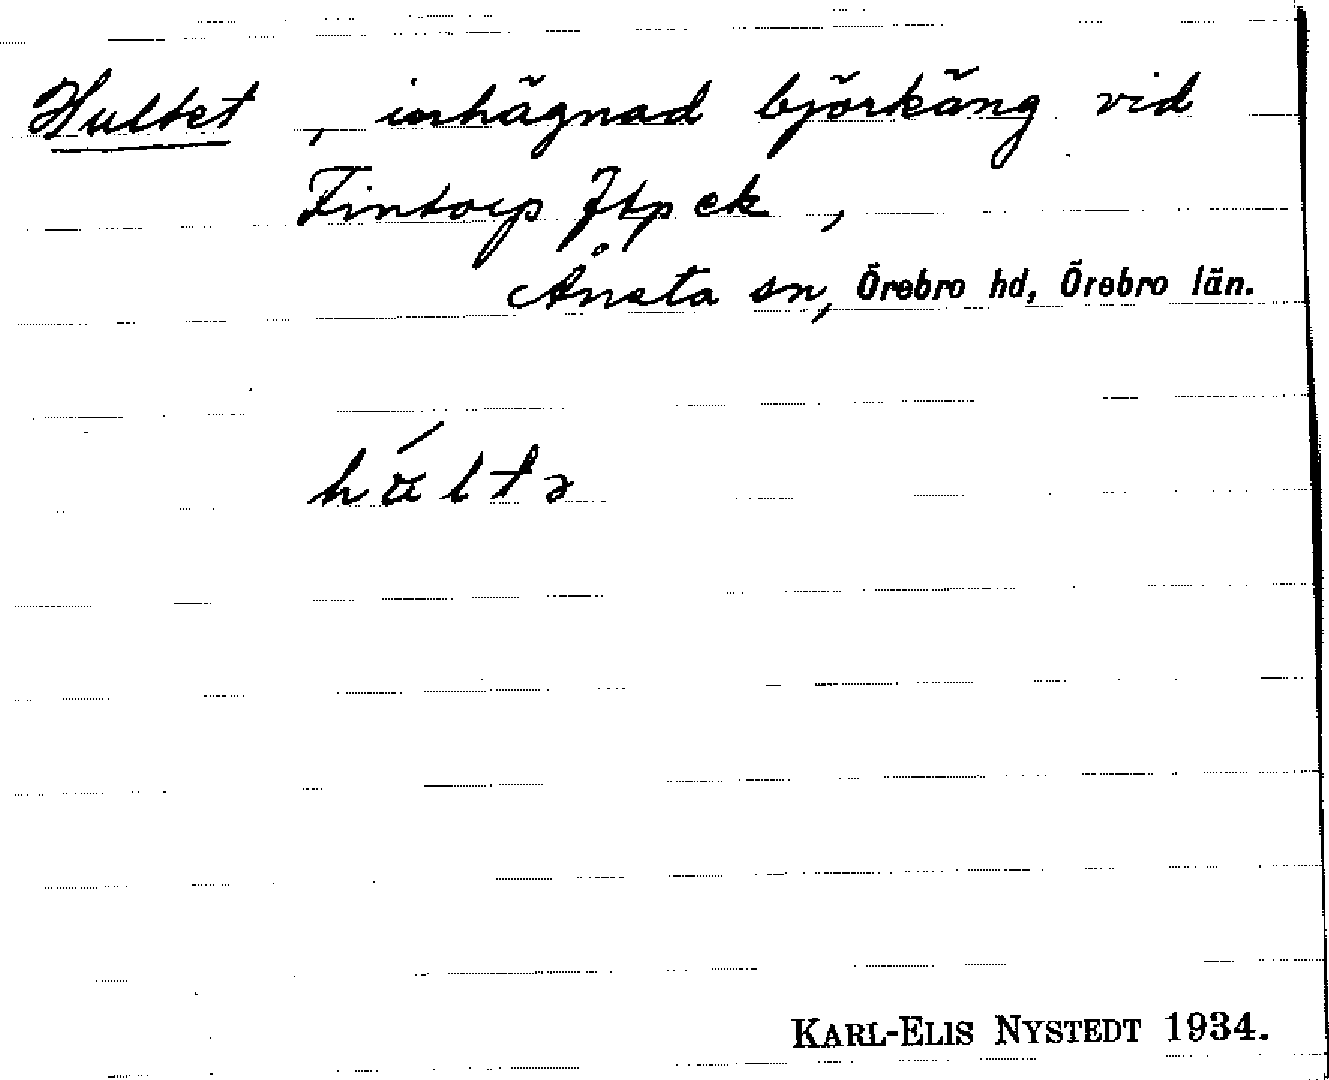 Hultet, inhägnad björkäng vid
Fintorp Jtp ek,
Ånsta sn, Örebro hd, Örebro län.
húltə
KARL-ELIS NYSTEDT 1934.